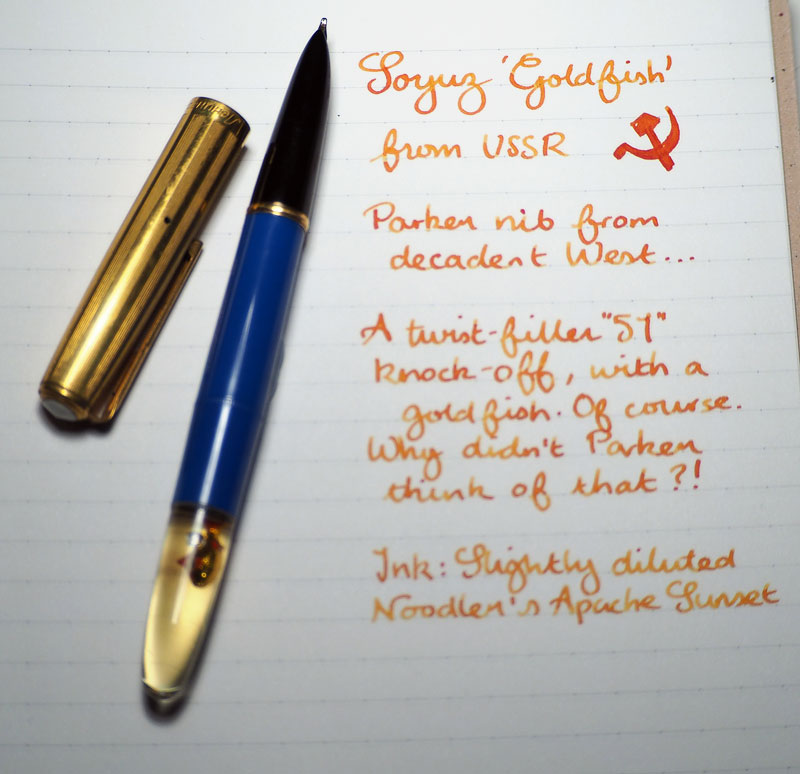 Soyuz 'Goldfish'
from USSR
Parker nib from
decadent West...
A twist-filler "51"
knock-off, with a
goldfish. Of course.
Why didn't Parker
think of that?!
Ink: Slightly diluted
Noodler's Apache Sunset